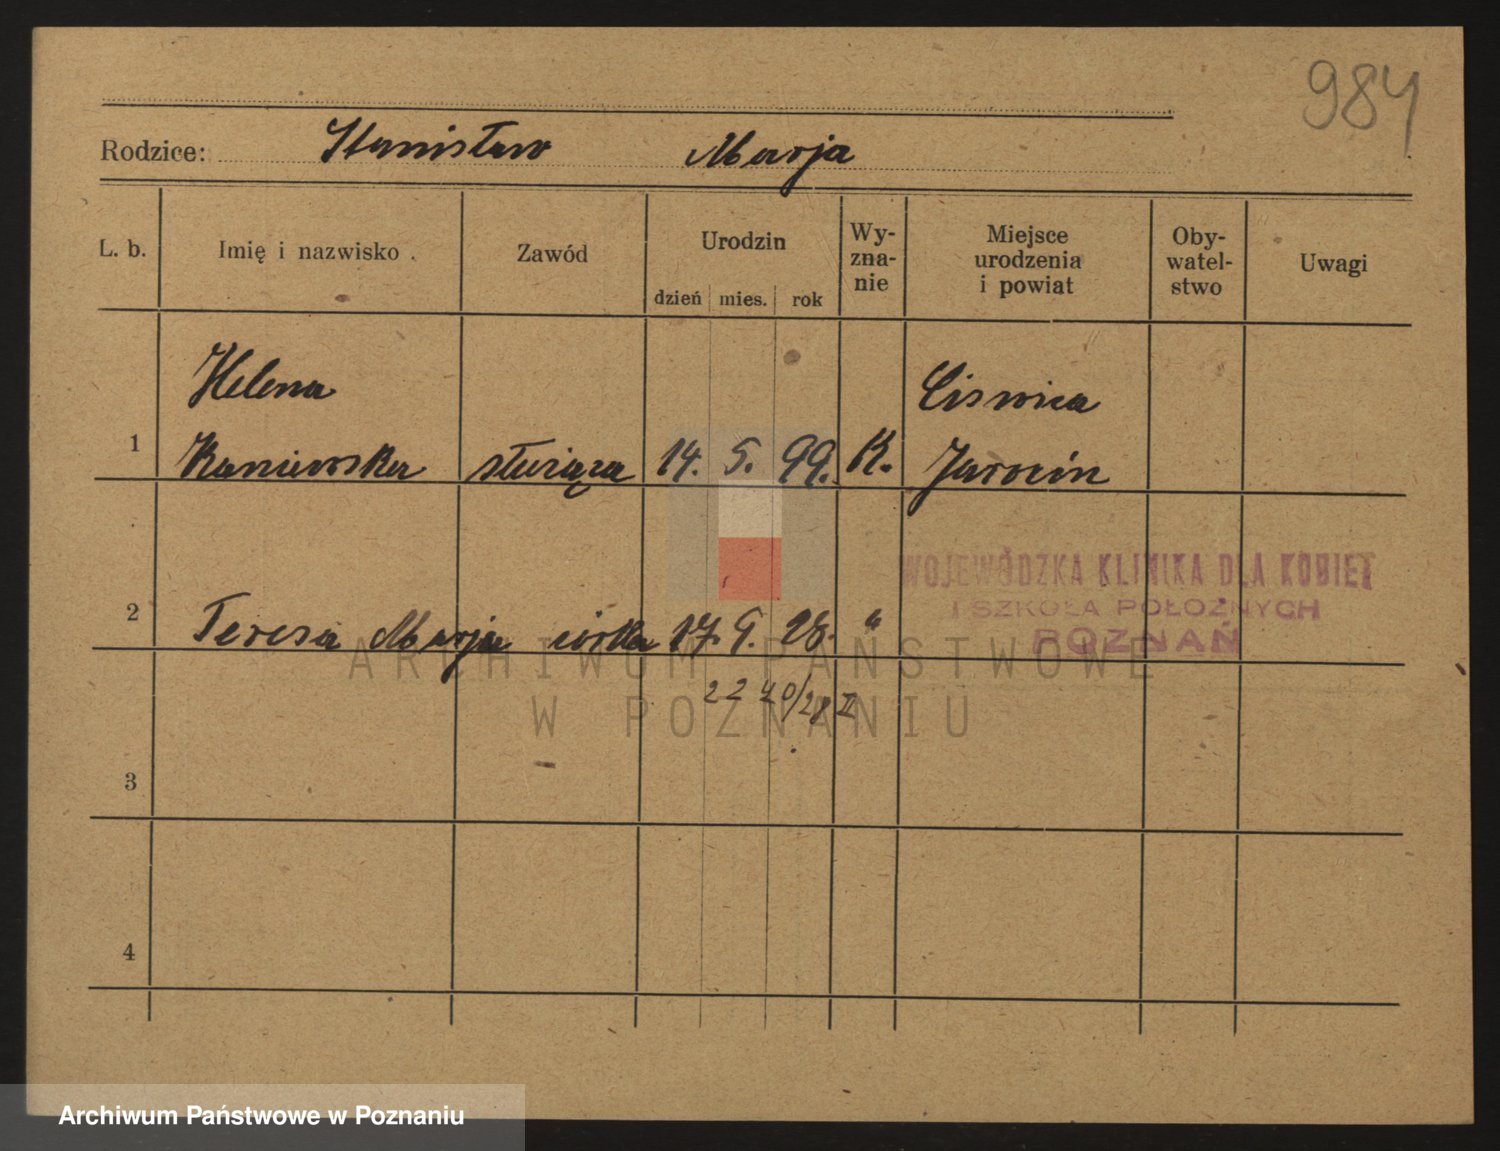 984
Rodzice: Stanisław Marja
L. b. Imię i nazwisko Zawód Urodzin dzień mies. rok Wy-zna-nie Miejsce urodzenia i powiat Oby-watel-stwo Uwagi
Helena Ciswica
1 Kaniewska służąca 14. 5. 99. K. Jarocin
WOJEWÓDZKA KLINIKA DLA KOBIET
I SZKOŁA POŁOŻNYCH
POZNAŃ
2 Teresa Marja córka 17. 9. 28. "
ARCHIWUM PAŃSTWOWE
W POZNANIU
2240/28 II
3
4
Archiwum Państwowe w Poznaniu